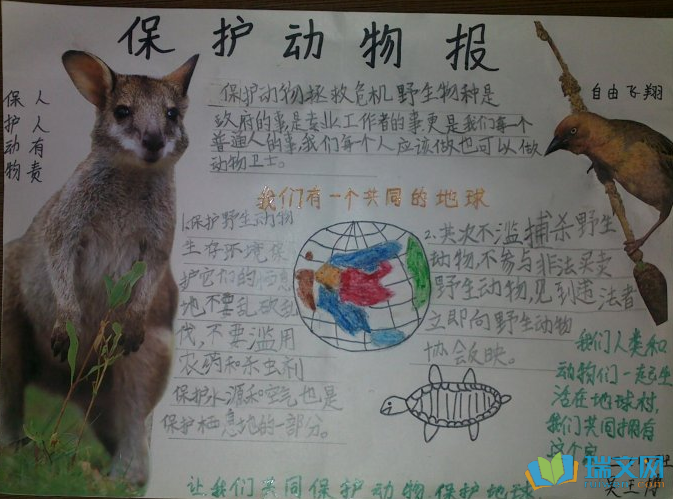 保护动物报
保护动物
人人有责
自由飞翔
保护动物拯救危机野生物种是
政府的事,是专业工作者的事更是我们每一个
普通人的事,我们每个人应该做也可以做
动物卫士。
我们有一个共同的地球
1.保护野生动物
生存环境保
护它们的栖息
地不要乱砍乱
伐,不要滥用
农药和杀虫剂
保护水源和空气也是
保护栖息地的一部分。
2.共次不滥捕杀野生
动物,不参与非法买卖
野生动物,见到违法者
立即向野生动物
协会反映。
我们人类和
动物们一起生
活在地球村,
我们共同拥有
这个家
让我们共同保护动物,保护地球
瑞文网